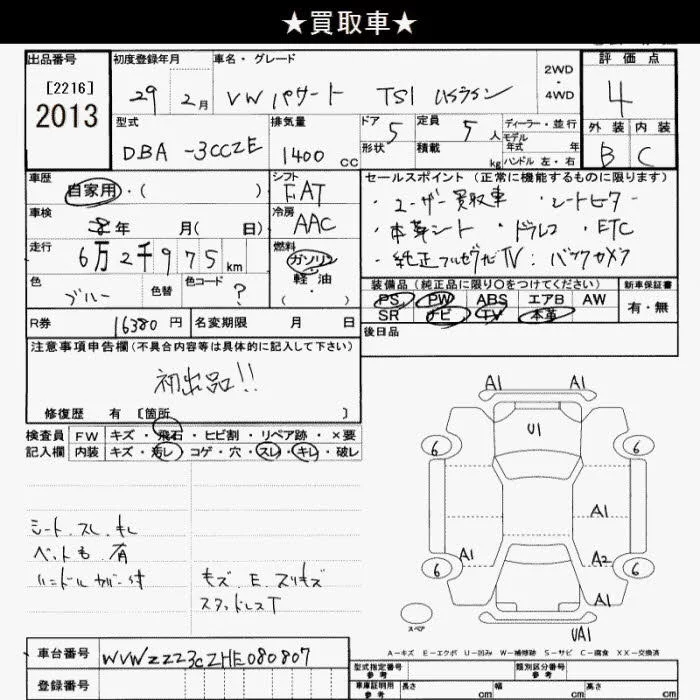 ★買取車★
出品番号
[2216]
2013
初度登録年月
29年 2月
車名・グレード
VW パサート TSI
2WD
・
4WD
評価点
4
外装 内装
B C
型式
DBA -3CCZE
排気量
1400 cc
ドア 5
形状
定員 5人
積載 kg
ディーラー・並行
モデル
年式 年
ハンドル 左・右
車歴
自家用・( )
シフト
FAT
セールスポイント(正常に機能するものに限ります)
・ユーザー買取車 ・シートヒーター
・本革シート ・ドラレコ ・ETC
・純正フルセグナビTV:バックカメラ
車検
年 月( 日)
冷房
AAC
走行
6万2千975km
燃料
ガソリン
・
軽・油
( )
色
ブルー
色替
色コード
?
装備品(純正品に限り○をつけてください)
PS PW ABS エアB AW
SR ナビ TV 本革
新車保証書
有・無
R券 16380円
名変期限 月 日
後日品
注意事項申告欄(不具合内容等は具体的に記入して下さい)
初出品!!
修復歴 有 〔箇所 〕
検査員
記入欄
FW キズ・飛石・ヒビ割・リペア跡・×要
内装 キズ・汚レ・コゲ・穴・スレ・キレ・破レ
シート.スレ.キレ
ペットも 有
ハンドルカバー付
キズ.E.スリキズ
スタッドレスT
A1 A1
U1
6 6
A1
A1 A2
6 6
A1
UA1
スペア
A-キズ E-エクボ U-凹み W-補修跡 S-サビ C-腐食 XX-交換済
車台番号 WVWZZZ3CZHE080807
登録番号
型式指定番号
参考
類別区分番号
参考
車庫証明用
参考
長さ cm 幅 cm 高さ cm